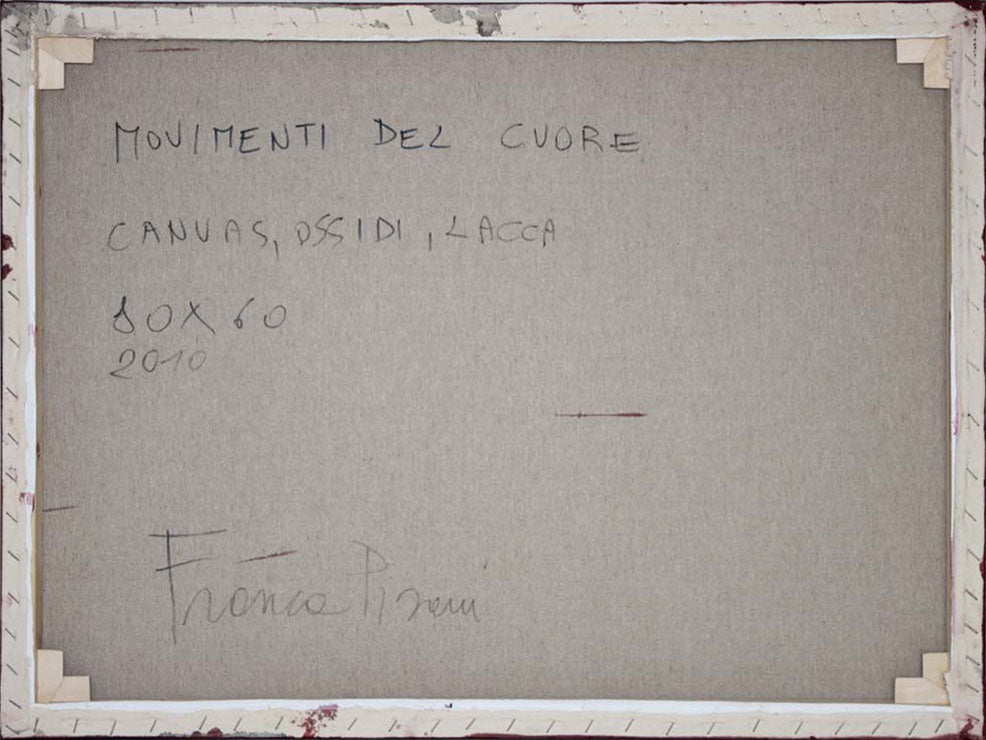 MOVIMENTI DEL CUORE
CANVAS, OSSIDI, LACCA
80X60
2010
Franca Pisani